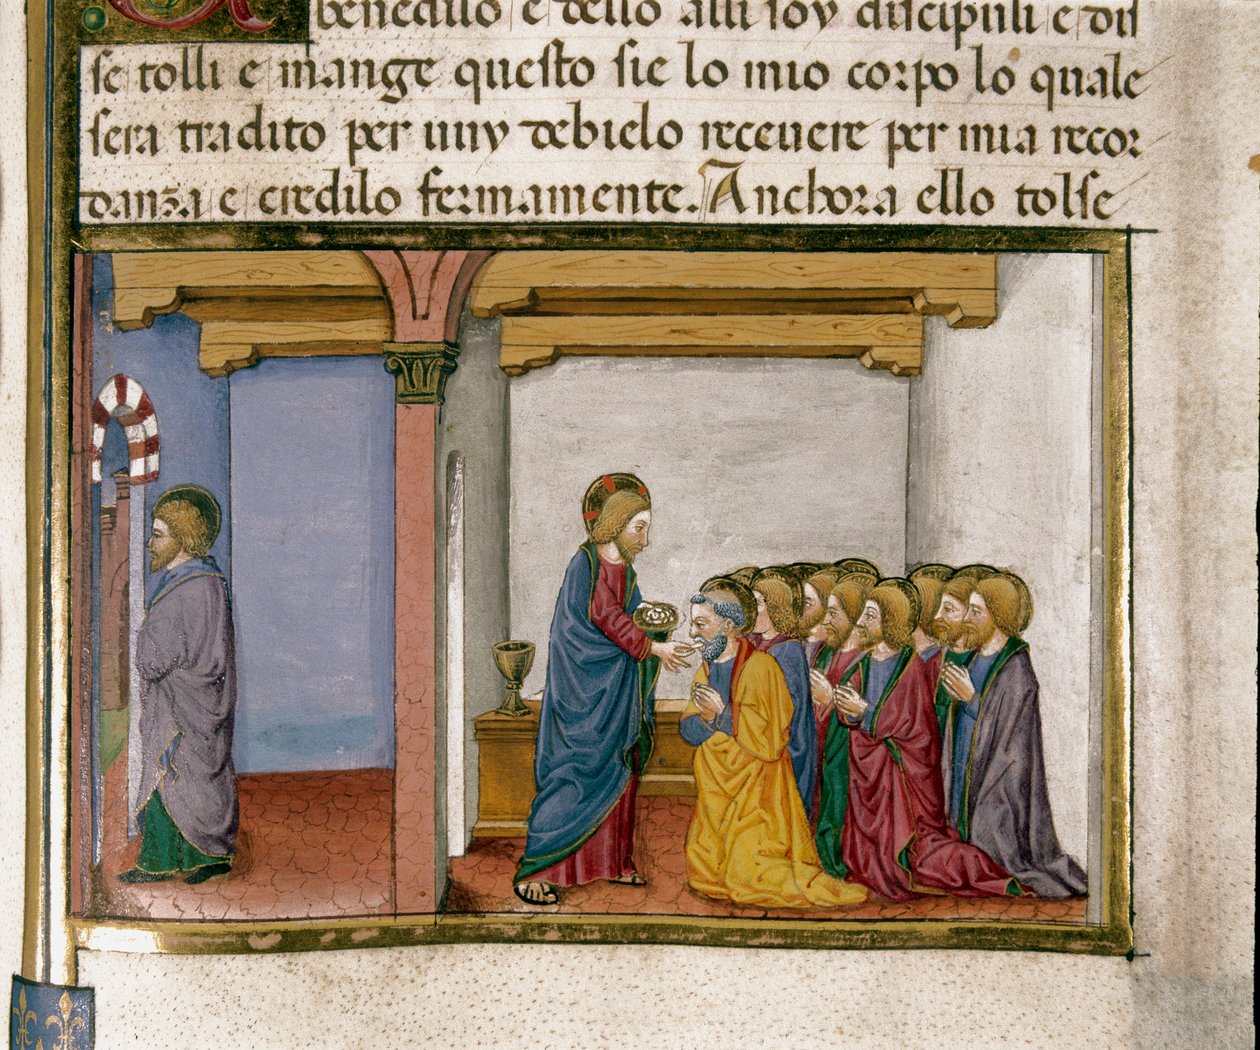 benedillo e dello alli soy discipuli e dis
se tolli e mange questo sie lo mio corpo lo quale
sera tradito per uuy debielo recevere per mia recor
danza e credilo fermamente. Anchora ello tolse